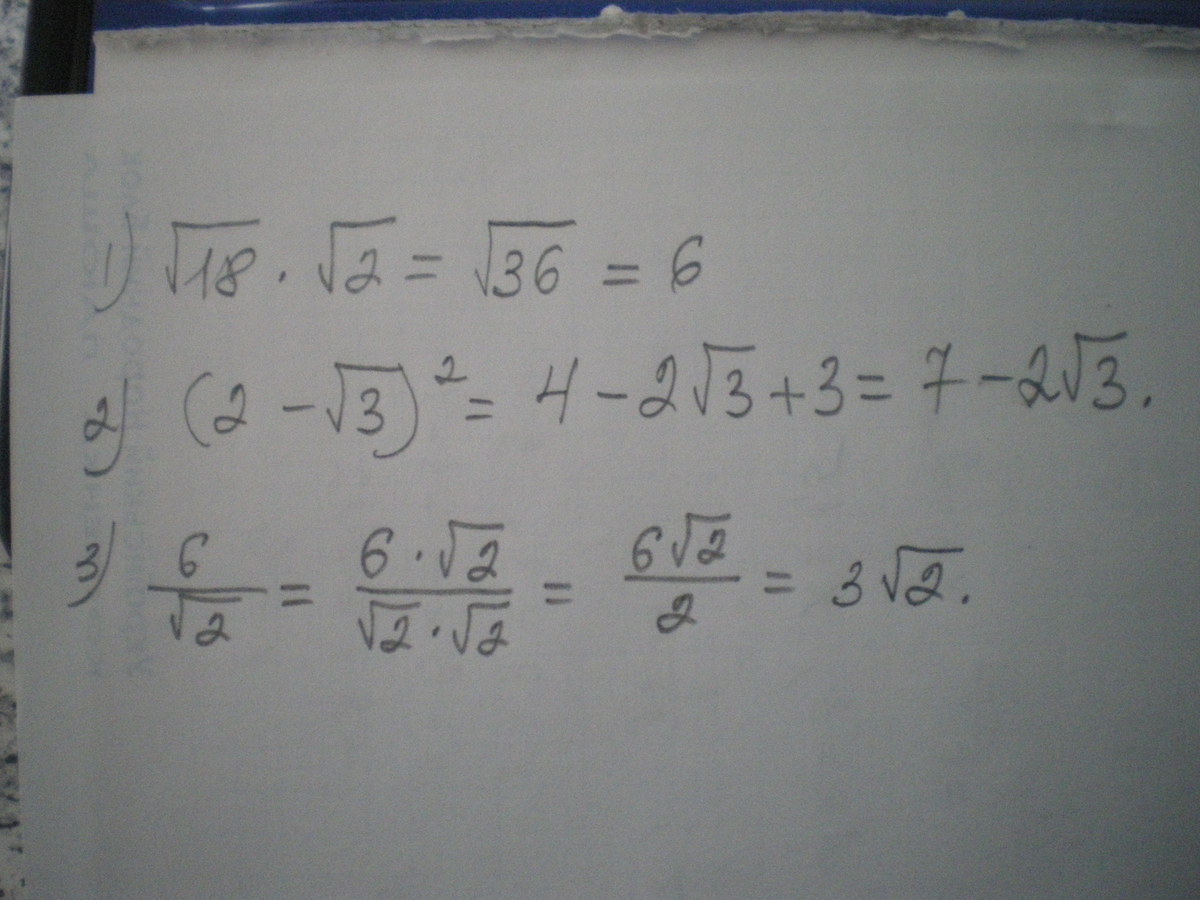 1) √18 · √2 = √36 = 6
2) (2 - √3)² = 4 - 2√3 + 3 = 7 - 2√3.
3) 6/√2 = 6·√2/√2·√2 = 6√2/2 = 3√2.